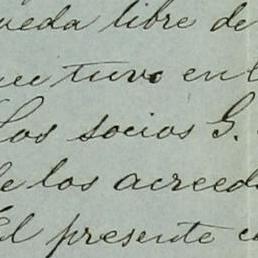 ueda libre de
ue tuvo en l
Los socios G.
e los acreed
El presente c